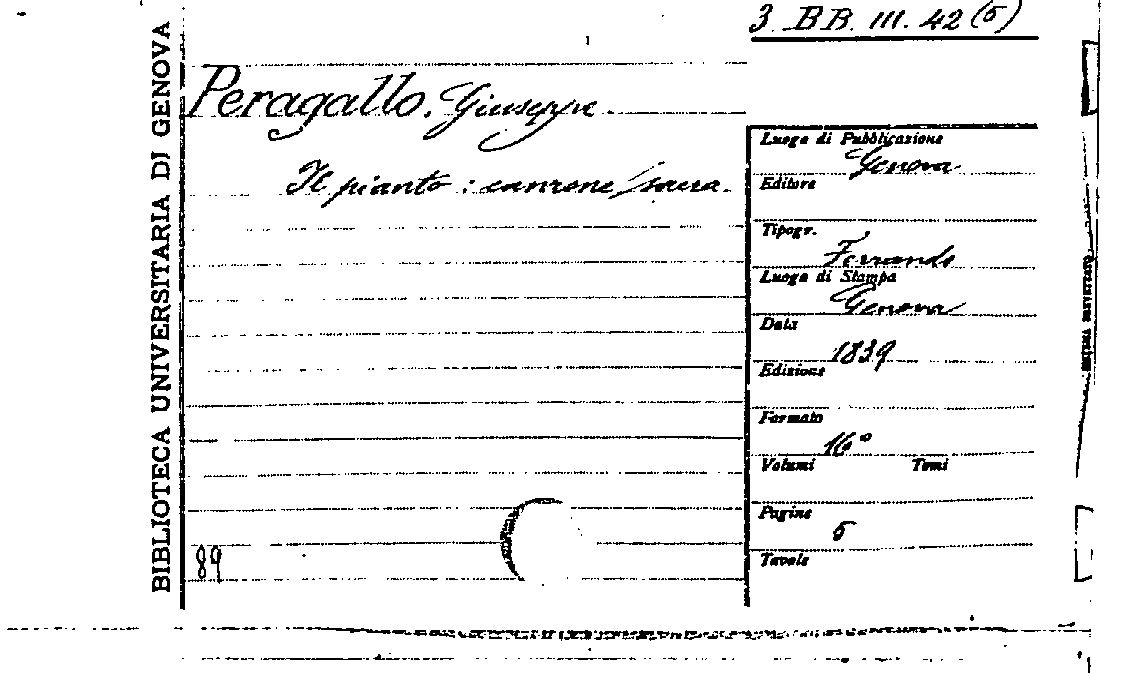 3. BB. III. 42 (5)
BIBLIOTECA UNIVERSITARIA DI GENOVA
Peragallo, Giuseppe.
Il pianto: canzone sacra.
Luogo di Pubblicazione
Genova
Editore
Tipogr.
Ferrando
Luogo di Stampa
Genova
Data
1839
Edizione
Formato
16°
Volumi Tomi
Pagine
5
Tavole
89